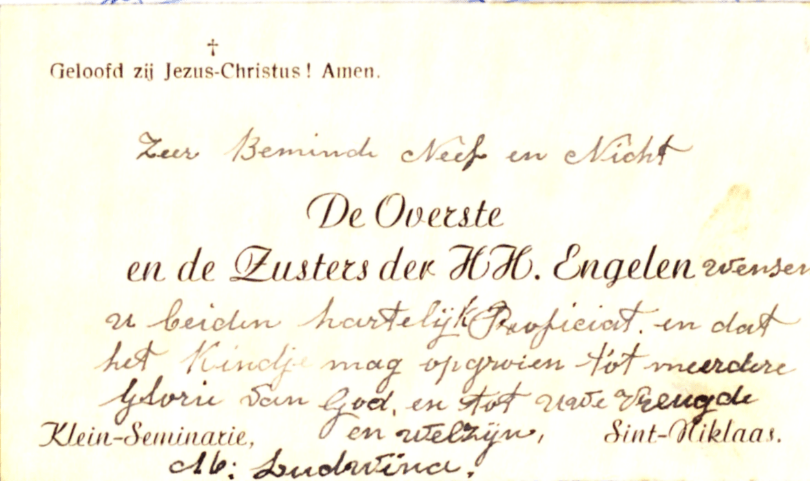 †
Geloofd zij Jezus-Christus! Amen.
Zeer Beminde Neef en Nicht
De Overste
en de Zusters der HH. Engelen wensen
u beiden hartelijk Proficiat. en dat
het Kindje mag opgroien tot meerdere
Glorie van God, en tot uwe Vreugde
Klein-Seminarie, en welzijn, Sint-Niklaas.
M: Ludwina.